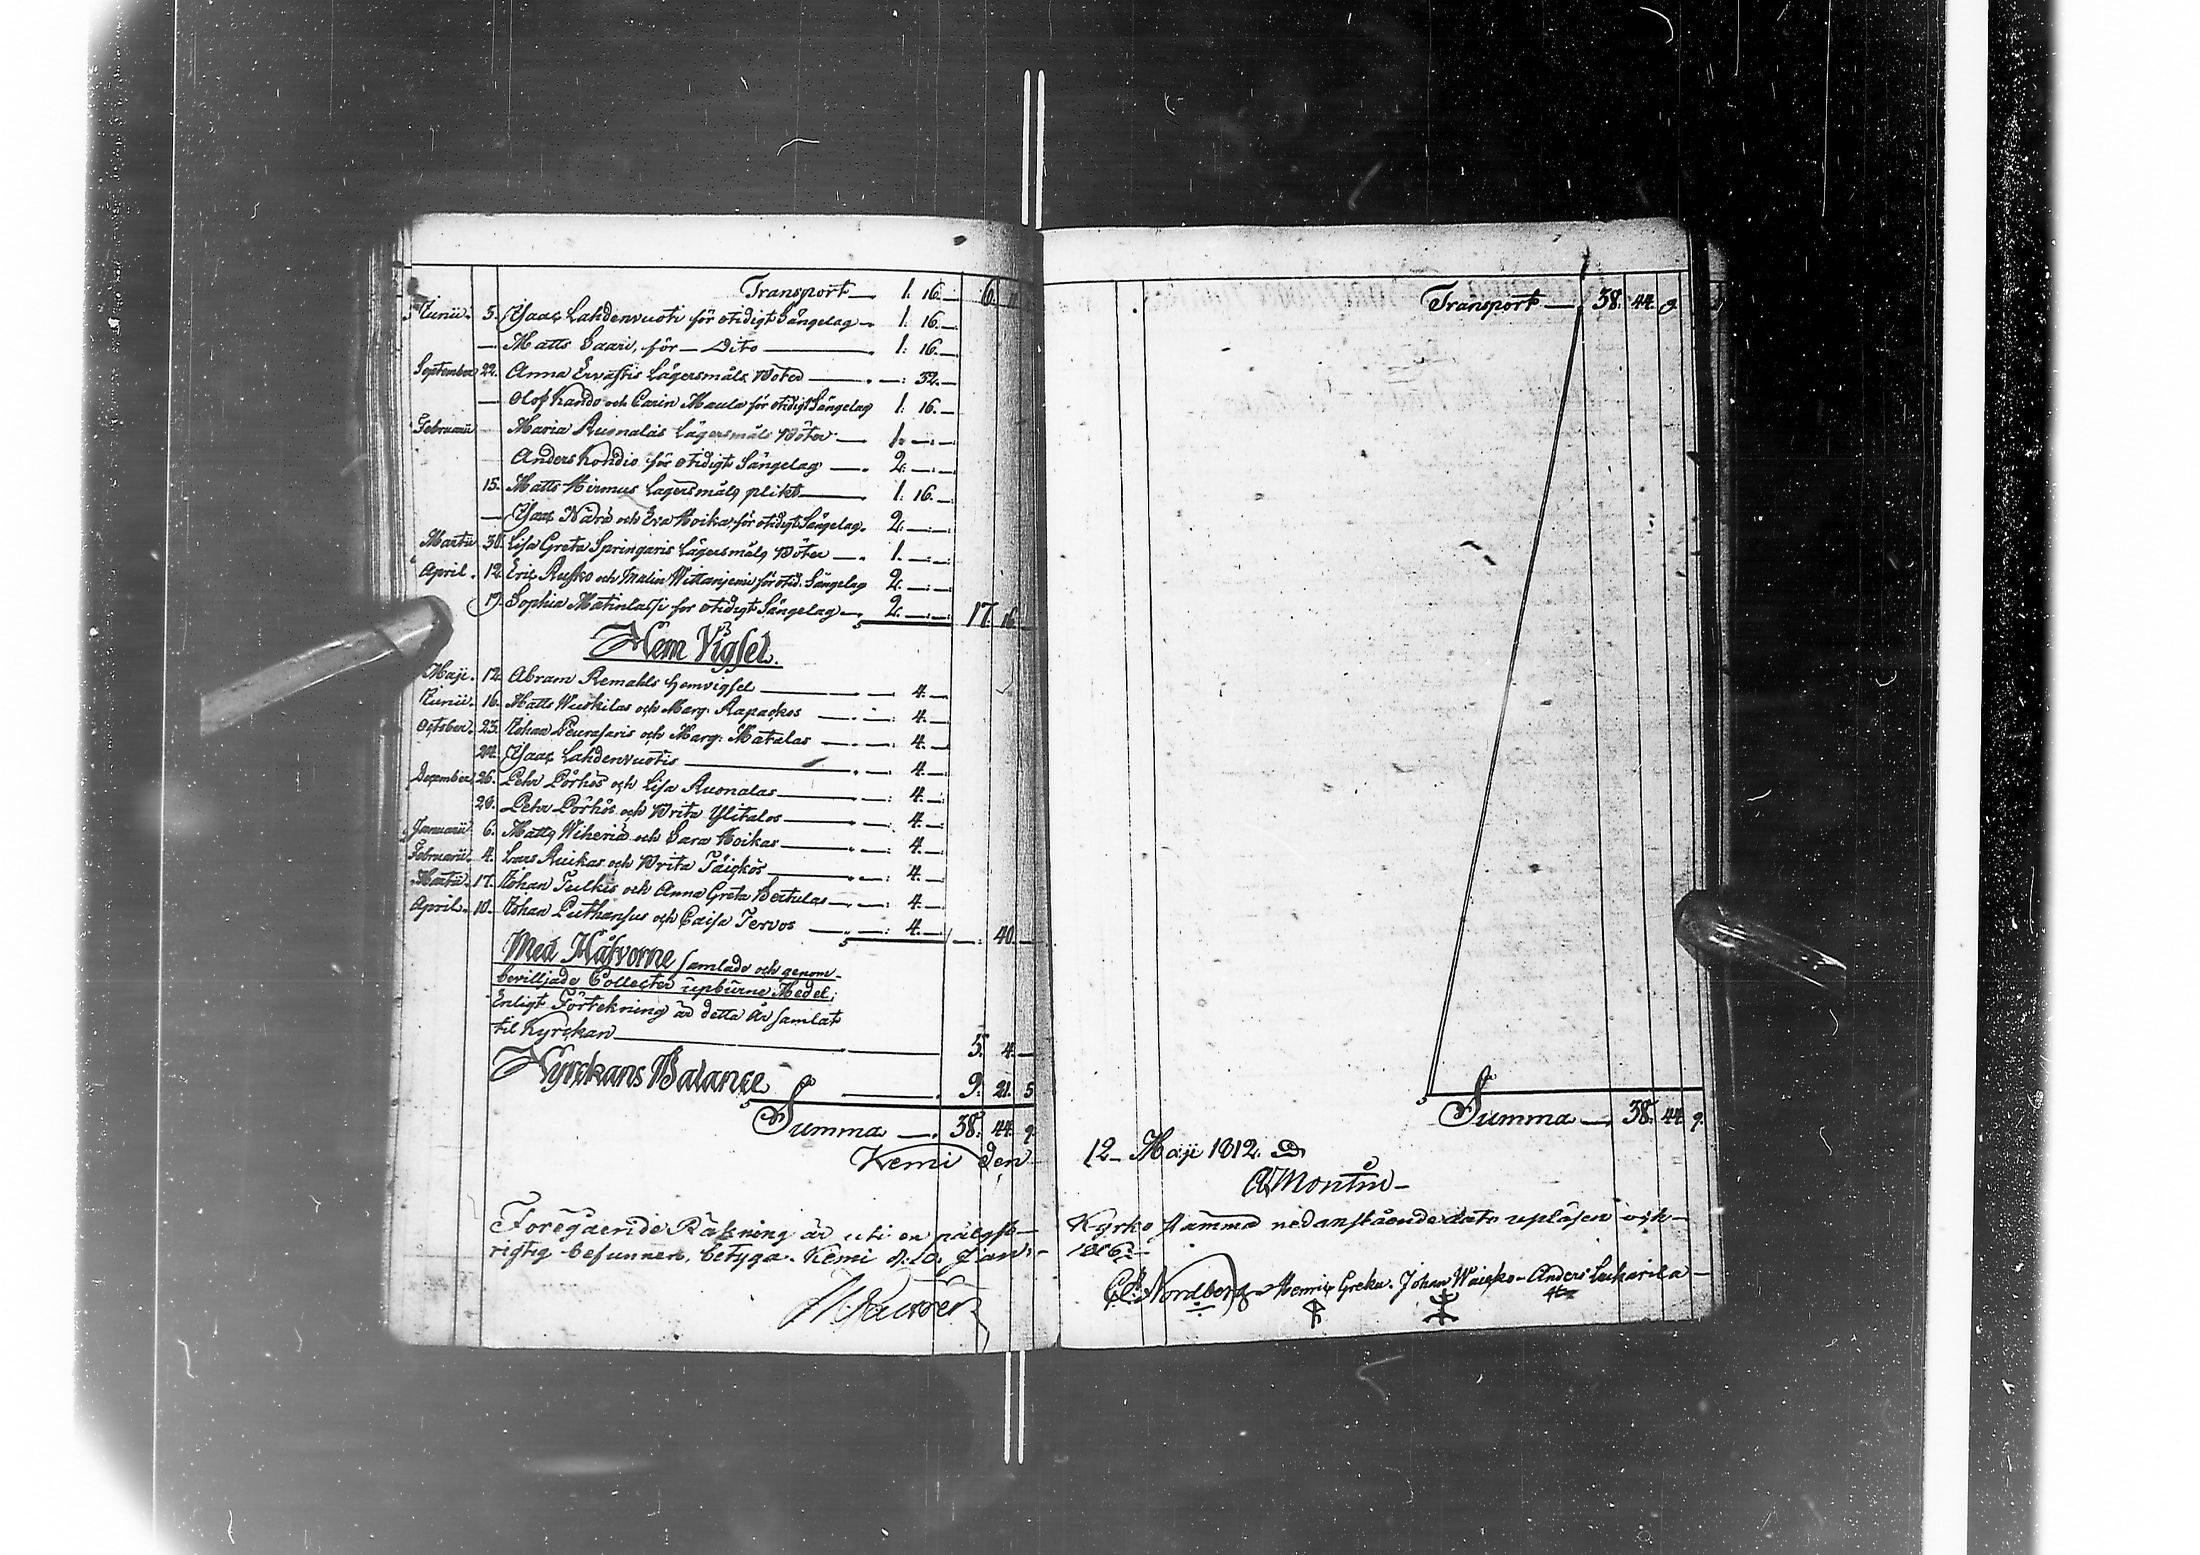 Transport — 1. 16. — 6.
Junii. 5. Isaac Lahdenvuoti för otidigt Sängelag — 1. 16. —
— Matts Saari, för — Dito — 1. 16. —
September 22. Anna Ervastis Lägersmåls Böter — . — : 32. —
— Olof Kando och Carin Maula för otidigt Sängelag 1. 16. —
Februarii — Maria Ruonalas Lägersmåls Böter — 1. — . —
Anders Kondio för otidigt Sängelag — . 2. — . —
15. Matts Hirmus Lägersmåls plikt — 1. 16. —
— Isaac Närä och Eva Hoika, för otidigt Sängelag. 2. — . —
Martii 30. Lisa Greta Springaris Lägersmåls Böter — . 1. — . —
April . 12. Eric Rusko och Malin Wittaniemi för otid. Sängelag 2. — . —
19. Sophia Matinlassi for otidigt Sängelag — . 2. — . — 17. 16.
Hem Vigsel.
Maji. 12. Abram Remahls hemvigsel — — 4. —
Junii. 16. Matts Wuokilas och Marg: Rapackos — . — : 4. —
October. 23. Johan Peurasaris och Marg: Matalas — . — : 4. —
24. Isaac Lahdenvuotis — . — : 4. —
December 26. Pehr Pörhös och Lisa Ruonalas — . — : 4. —
29. Pehr Pörhös och Brita Ylitalos — . — : 4. —
Januarii 6. Matts Wiheriä och Sara Hoikas — . — : 4. —
Februarii. 4. Lars Ruikas och Brita Täickös — . — : 4. —
Martii. 17. Johan Julkus och Anna Greta Bertulas — . — : 4. —
April. 10. Johan Puthansus och Caisa Tervos — . — : 4. — — : 40. —
Med Håfvorne samlade och genom
bevilljade Collecter upburne Medel;
Enligt Förtekning är detta År samlat
til Kyrckan — 5. 4. —
Kyrckans Balance — 9. 21. 5
Summa — . 38. 44. 9.
Kemi den
Foregående Räkning är uti en pålyst
rigtig befunnen, betyga. Kemi d. 10. Jan:
Transport — . 38. 44. 9
Summa — . 38. 44. 9.
12 — Maji 1812.
A. Montin —
Kyrko stämma nedanstående dato upläsen och —
1816. —
Nordberg Henric Greku. Johan Waicko — Anders Leukarila —